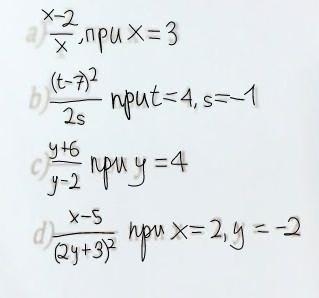 a) x-2/x, при x=3
b) (t-7)²/2s при t=4, s=-1
c) y+6/y-2 при y=4
d) x-5/(2y+3)² при x=2, y=-2